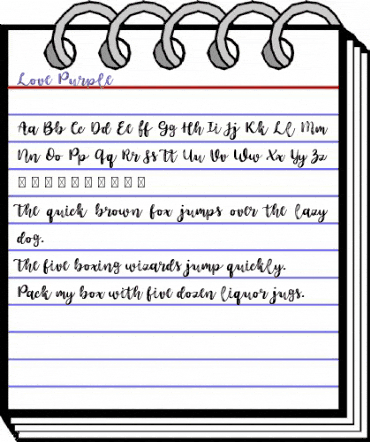 Love Purple
Aa Bb Cc Dd Ee ff Gg Hh Ii Jj Kk Ll Mm
Nn Oo Pp Qq Rr Ss Tt Uu Vv Ww Xx Yy Zz
The quick brown fox jumps over the lazy
dog.
The five boxing wizards jump quickly.
Pack my box with five dozen liquor jugs.